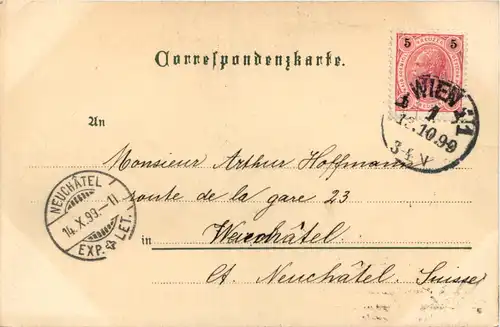 Correspondenzkarte.
5 5
WIEN 1/1
1
12.10.99
3-4 V
An
Monsieur Arthur Hoffmann
route de la gare 23
in Neuchâtel
Ct. Neuchâtel. Suisse
NEUCHÂTEL
14.X.99.-11
EXP. LET.